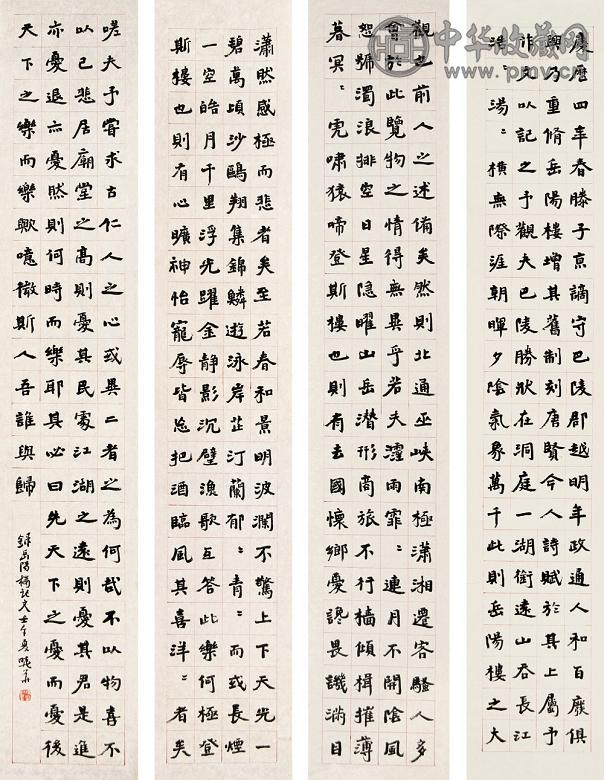 中华收藏网
www.pmv.cn
慶曆四年春滕子京謫守巴陵郡越明年政通人和百廢俱
興乃重脩岳陽樓增其舊制刻唐賢今人詩賦於其上屬予
作文以記之予觀夫巴陵勝狀在洞庭一湖銜遠山吞長江
浩：湯：橫無際涯朝暉夕陰氣象萬千此則岳陽樓之大
觀也前人之述備矣然則北通巫峽南極瀟湘遷客騷人多
會於此覽物之情得無異乎若夫霪雨霏：連月不開陰風
怒號濁浪排空日星隱曜山岳潛形商旅不行檣傾楫摧薄
暮冥：虎嘯猿啼登斯樓也則有去國懷鄉憂讒畏譏滿目
瀟然感極而悲者矣至若春和景明波瀾不驚上下天光一
碧萬頃沙鷗翔集錦鱗遊泳岸芷汀蘭郁：青：而或長煙
一空皓月千里浮光躍金靜影沉璧漁歌互答此樂何極登
斯樓也則有心曠神怡寵辱皆忘把酒臨風其喜洋：者矣
嗟夫予嘗求古仁人之心或異二者之為何哉不以物喜不
以己悲居廟堂之高則憂其民處江湖之遠則憂其君是進
亦憂退亦憂然則何時而樂耶其必曰先天下之憂而憂後
天下之樂而樂歟噫微斯人吾誰與歸
錄岳陽樓記文壬午夏